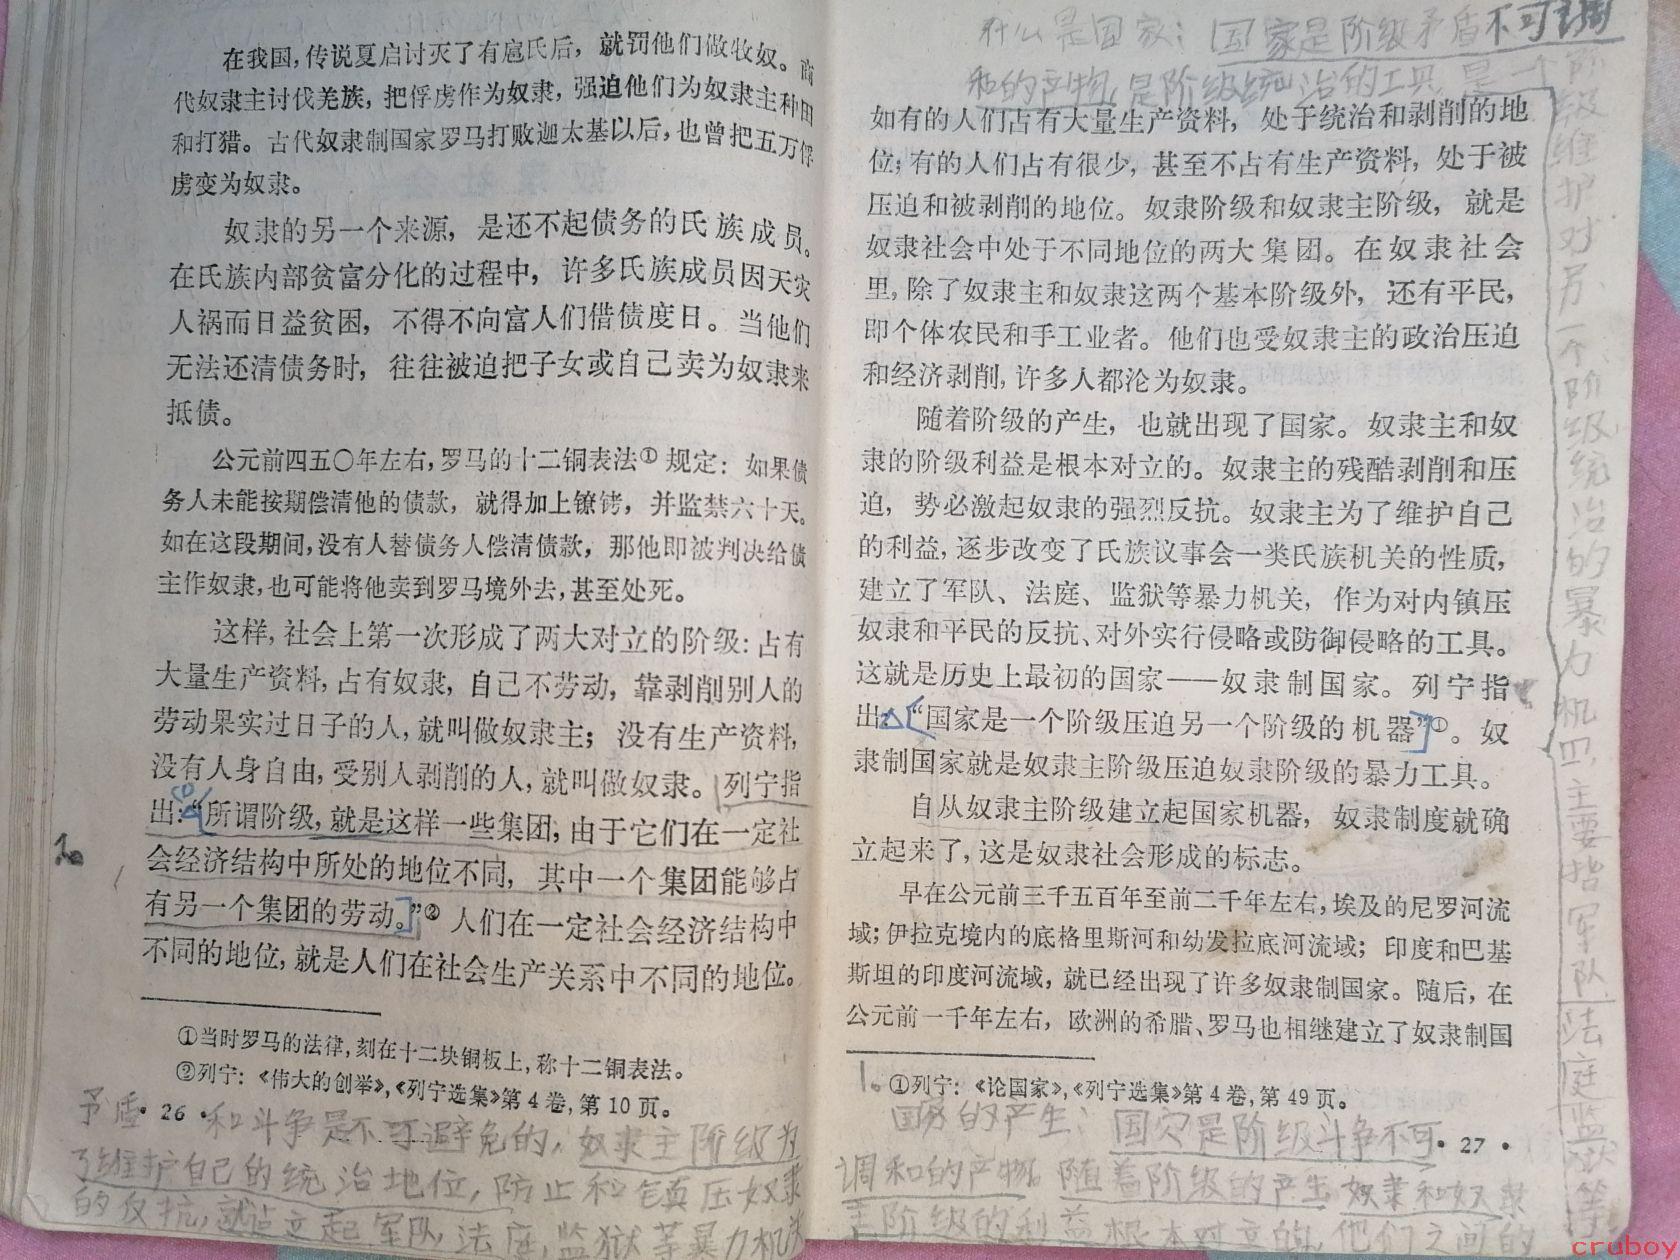 在我国，传说夏启讨灭了有扈氏后，就罚他们做牧奴。商
代奴隶主讨伐羌族，把俘虏作为奴隶，强迫他们为奴隶主种田
和打猎。古代奴隶制国家罗马打败迦太基以后，也曾把五万俘
虏变为奴隶。
奴隶的另一个来源，是还不起债务的氏族成员。
在氏族内部贫富分化的过程中，许多氏族成员因天灾
人祸而日益贫困，不得不向富人们借债度日。当他们
无法还清债务时，往往被迫把子女或自己卖为奴隶来
抵债。
公元前四五〇年左右，罗马的十二铜表法①规定：如果债
务人未能按期偿清他的债款，就得加上镣铐，并监禁六十天。
如在这段期间，没有人替债务人偿清债款，那他即被判决给债
主作奴隶，也可能将他卖到罗马境外去，甚至处死。
这样，社会上第一次形成了两大对立的阶级：占有
大量生产资料，占有奴隶，自己不劳动，靠剥削别人的
劳动果实过日子的人，就叫做奴隶主；没有生产资料，
没有人身自由，受别人剥削的人，就叫做奴隶。列宁指
出：“所谓阶级，就是这样一些集团，由于它们在一定社
会经济结构中所处的地位不同，其中一个集团能够占
有另一个集团的劳动。”②人们在一定社会经济结构中
不同的地位，就是人们在社会生产关系中不同的地位。
①当时罗马的法律，刻在十二块铜板上，称十二铜表法。
②列宁：《伟大的创举》，《列宁选集》第4卷，第10页。
矛盾
·26·
和斗争是不可避免的，奴隶主阶级为
了维护自己的统治地位，防止和镇压奴隶
的反抗，就建立起军队，法庭，监狱等暴力机关
什么是国家：国家是阶级矛盾不可调
和的产物，是阶级统治的工具，是一个阶
级维护对另一个阶级统治的暴力机四，主要指军队，法庭监狱等
如有的人们占有大量生产资料，处于统治和剥削的地
位；有的人们占有很少，甚至不占有生产资料，处于被
压迫和被剥削的地位。奴隶阶级和奴隶主阶级，就是
奴隶社会中处于不同地位的两大集团。在奴隶社会
里，除了奴隶主和奴隶这两个基本阶级外，还有平民，
即个体农民和手工业者。他们也受奴隶主的政治压迫
和经济剥削，许多人都沦为奴隶。
随着阶级的产生，也就出现了国家。奴隶主和奴
隶的阶级利益是根本对立的。奴隶主的残酷剥削和压
迫，势必激起奴隶的强烈反抗。奴隶主为了维护自己
的利益，逐步改变了氏族议事会一类氏族机关的性质，
建立了军队、法庭、监狱等暴力机关，作为对内镇压
奴隶和平民的反抗、对外实行侵略或防御侵略的工具。
这就是历史上最初的国家——奴隶制国家。列宁指
出：“国家是一个阶级压迫另一个阶级的机器”①。奴
隶制国家就是奴隶主阶级压迫奴隶阶级的暴力工具。
自从奴隶主阶级建立起国家机器，奴隶制度就确
立起来了，这是奴隶社会形成的标志。
早在公元前三千五百年至前二千年左右，埃及的尼罗河流
域；伊拉克境内的底格里斯河和幼发拉底河流域；印度和巴基
斯坦的印度河流域，就已经出现了许多奴隶制国家。随后，在
公元前一千年左右，欧洲的希腊、罗马也相继建立了奴隶制国
①列宁：《论国家》，《列宁选集》第4卷，第49页。
·27·
国家的产生：国家是阶级斗争不可
调和的产物。随着阶级的产生，奴隶和奴隶
主阶级的利益根本对立的，他们之间的
cruboy